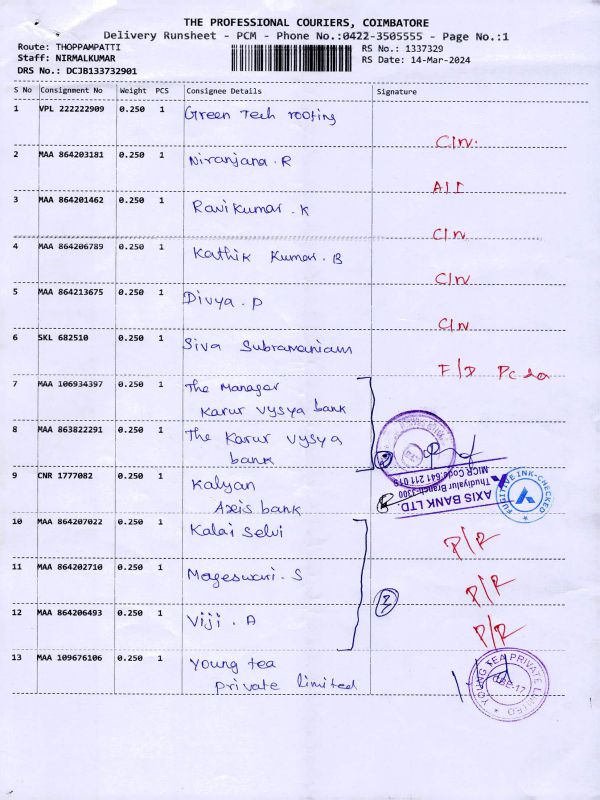 THE PROFESSIONAL COURIERS, COIMBATORE
Delivery Runsheet - PCM - Phone No.:0422-3505555 - Page No.:1
Route: THOPPAMPATTI
Staff: NIRMALKUMAR
DRS No.: DCJB133732901
RS No.: 1337329
RS Date: 14-Mar-2024
S No Consignment No Weight PCS Consignee Details Signature
1 VPL 222222909 0.250 1 Green Tech roofing
2 MAA 864203181 0.250 1 Niranjana . R
3 MAA 864201462 0.250 1 Ravikumar . K
4 MAA 864206789 0.250 1 Kathik Kumar . B
5 MAA 864213675 0.250 1 Divya . P
6 SKL 682510 0.250 1 Siva Subramaniam
F/D
7 MAA 106934397 0.250 1 The Manager
Karur vysya bank
8 MAA 863822291 0.250 1 The Karur vysya
bank
9 CNR 1777082 0.250 1 Kalyan
Axis bank
AXIS BANK LTD.
Thudiyalur Branch-3300
MICR Code:641 211 019
FUGITIVE INK-CHECKED
10 MAA 864207022 0.250 1 Kalai Selvi P/R
11 MAA 864202710 0.250 1 Mageswari . S P/R
3
12 MAA 864206493 0.250 1 Viji . A P/R
13 MAA 109676106 0.250 1 Young tea
private limited
YOUNG TEA PRIVATE LIMITED